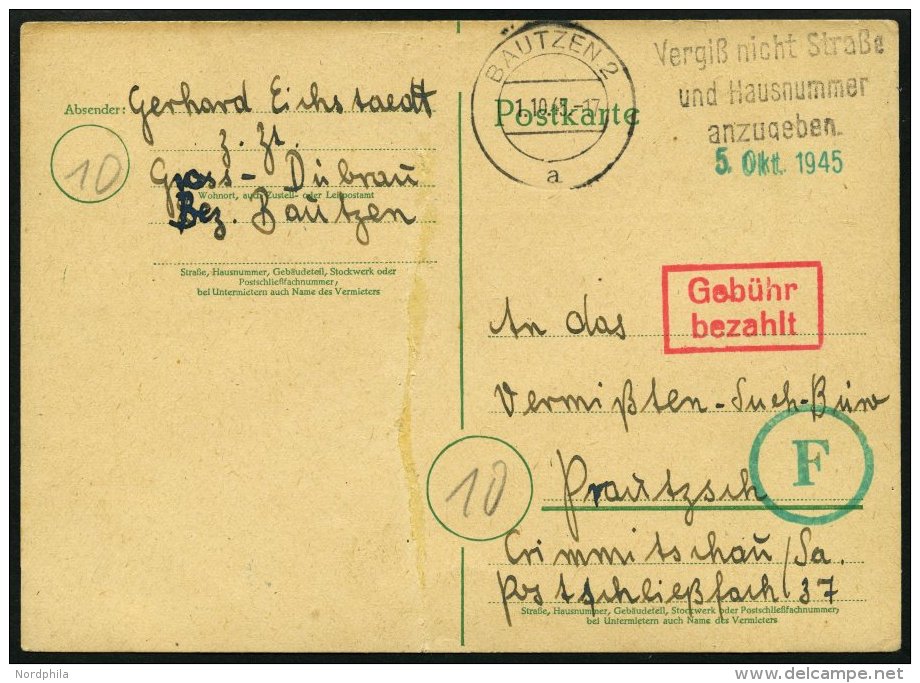 Absender: Gerhard Eichstaedt
z. Zt.
Gross-Dubrau
Wohnort, auch Zustell- oder Leitpostamt
Bez. Bautzen
Straße, Hausnummer, Gebäudeteil, Stockwerk oder
Postschließfachnummer,
bei Untermietern auch Name des Vermieters
10
BAUTZEN 2
1.10.45.-17
a
Postkarte
Vergiß nicht Straße
und Hausnummer
anzugeben.
5. Okt. 1945
Gebühr
bezahlt
An das
Vermißten-Such-Büro
F
10
Prautzsch
Crimmitschau/Sa.
Postschließfach 37
Straße, Hausnummer, Gebäudeteil, Stockwerk oder Postschließfachnummer,
bei Untermietern auch Name des Vermieters
Nordphila
www.delcampe.net